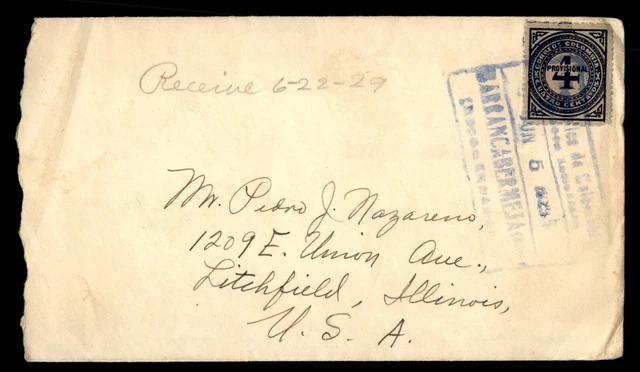 CORREOS COLOMBIA
PROVISIONAL
4
CUATRO CENTAVOS
BARRANCABERMEJA
JUN 5
Receive 6-22-29
Mr. Pedro J. Nazareno,
1209 E. Union Ave.,
Litchfield, Illinois,
U. S. A.